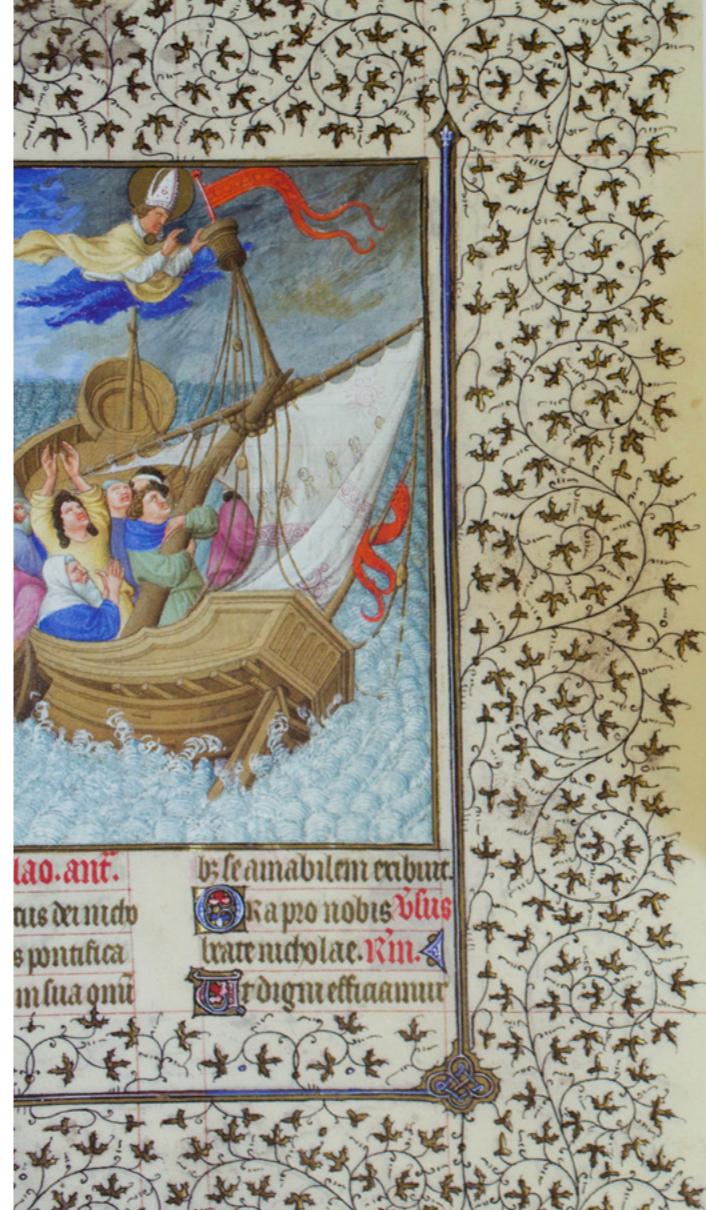 lao. ant̄.
tus dei nicho
s pontifica
m sua om̄i
bꝫ se amabilem exibuit.
Ora pro nobis v̄sus
beate nicholae. R̄m.
Ut digni efficiamur